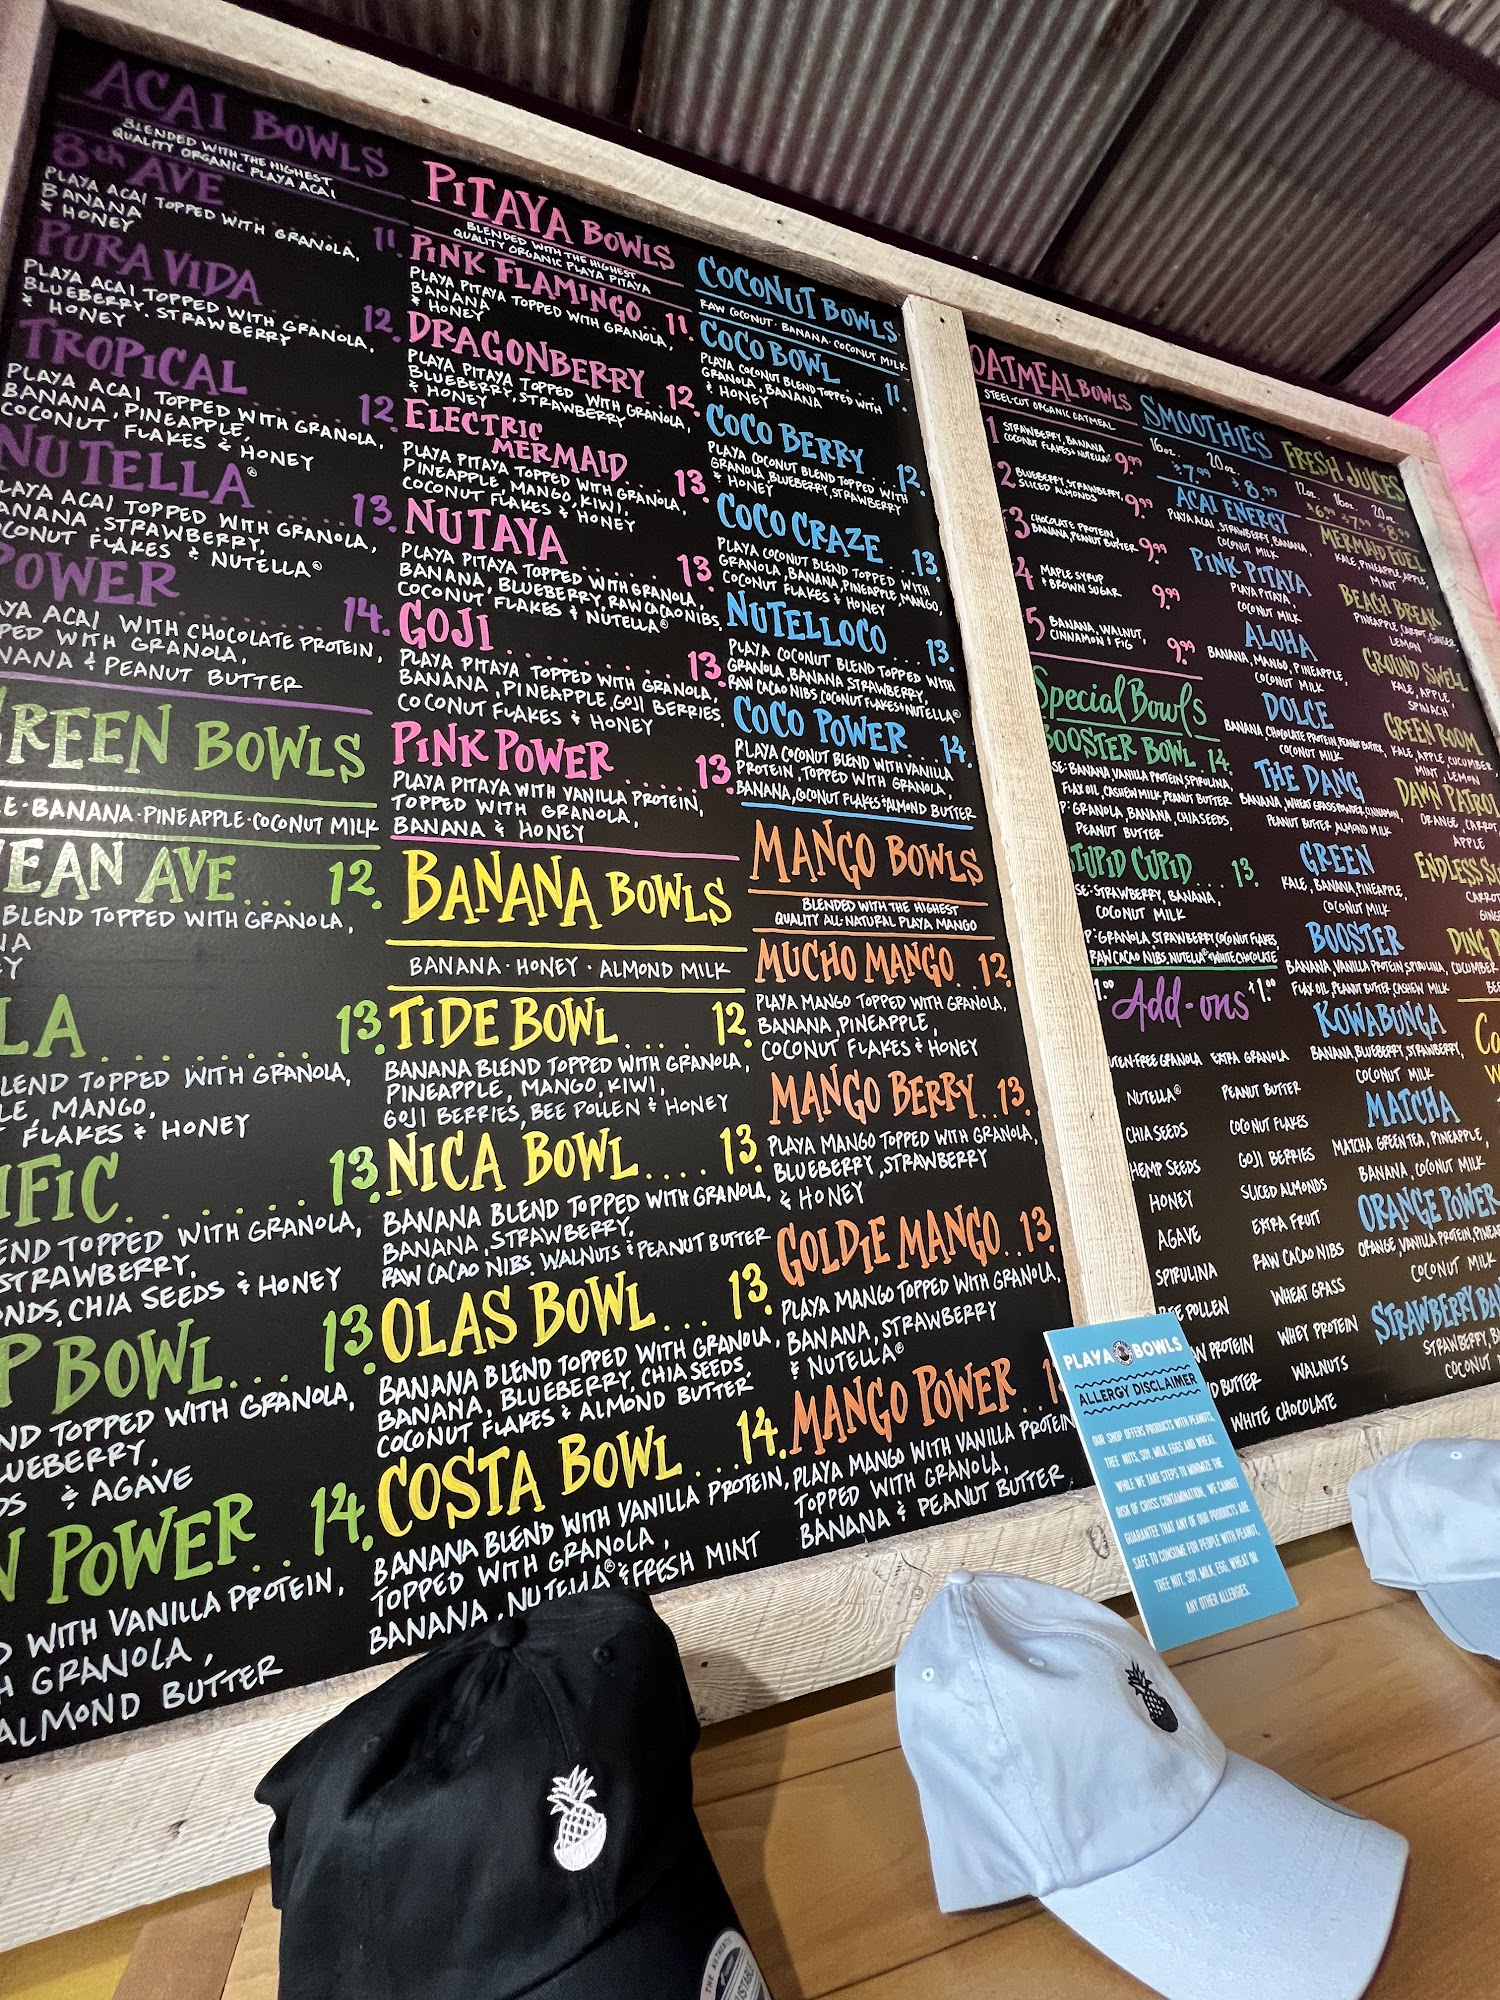 ACAI BOWLS
BLENDED WITH THE HIGHEST
QUALITY ORGANIC PLAYA ACAI
8th AVE ........ 11.
PLAYA ACAI TOPPED WITH GRANOLA,
BANANA
& HONEY
PURA VIDA ........ 12.
PLAYA ACAI TOPPED WITH GRANOLA,
BLUEBERRY, STRAWBERRY
& HONEY
TROPICAL ........ 12.
PLAYA ACAI TOPPED WITH GRANOLA,
BANANA, PINEAPPLE,
COCONUT FLAKES & HONEY
NUTELLA® ...... 13.
PLAYA ACAI TOPPED WITH GRANOLA,
BANANA, STRAWBERRY,
COCONUT FLAKES & NUTELLA®
POWER ........ 14.
ACAI WITH CHOCOLATE PROTEIN,
WITH GRANOLA,
BANANA & PEANUT BUTTER
GREEN BOWLS
BANANA · PINEAPPLE · COCONUT MILK
AVE... 12.
BLEND TOPPED WITH GRANOLA,
13.
BLEND TOPPED WITH GRANOLA,
MANGO,
FLAKES & HONEY
13.
TOPPED WITH GRANOLA,
STRAWBERRY,
CHIA SEEDS & HONEY
BOWL... 13.
TOPPED WITH GRANOLA,
BLUEBERRY,
& AGAVE
POWER .. 14.
WITH VANILLA PROTEIN,
GRANOLA,
ALMOND BUTTER
PITAYA BOWLS
BLENDED WITH THE HIGHEST
QUALITY ORGANIC PLAYA PITAYA
PINK FLAMINGO.. 11.
PLAYA PITAYA TOPPED WITH GRANOLA,
BANANA
& HONEY
DRAGONBERRY 12.
PLAYA PITAYA TOPPED WITH GRANOLA,
BLUEBERRY, STRAWBERRY
& HONEY
ELECTRIC
MERMAID ... 13.
PLAYA PITAYA TOPPED WITH GRANOLA,
PINEAPPLE, MANGO, KIWI,
COCONUT FLAKES & HONEY
NUTAYA ....... 13
PLAYA PITAYA TOPPED WITH GRANOLA,
BANANA, BLUEBERRY, RAW CACAO NIBS,
COCONUT FLAKES & NUTELLA®
GOJI .......... 13.
PLAYA PITAYA TOPPED WITH GRANOLA,
BANANA, PINEAPPLE, GOJI BERRIES,
COCONUT FLAKES & HONEY
PINK POWER ..... 13.
PLAYA PITAYA WITH VANILLA PROTEIN,
TOPPED WITH GRANOLA,
BANANA & HONEY
BANANA BOWLS
BANANA · HONEY · ALMOND MILK
TIDE BOWL .... 12.
BANANA BLEND TOPPED WITH GRANOLA,
PINEAPPLE, MANGO, KIWI,
GOJI BERRIES, BEE POLLEN & HONEY
NICA BOWL.... 13.
BANANA BLEND TOPPED WITH GRANOLA,
BANANA, STRAWBERRY,
RAW CACAO NIBS, WALNUTS & PEANUT BUTTER
OLAS BOWL... 13.
BANANA BLEND TOPPED WITH GRANOLA,
BANANA, BLUEBERRY, CHIA SEEDS,
COCONUT FLAKES & ALMOND BUTTER
COSTA BOWL ... 14.
BANANA BLEND WITH VANILLA PROTEIN,
TOPPED WITH GRANOLA,
BANANA, NUTELLA® & FRESH MINT
COCONUT BOWLS
RAW COCONUT · BANANA · COCONUT MILK
COCO BOWL .... 11.
PLAYA COCONUT BLEND TOPPED WITH
GRANOLA, BANANA
& HONEY
COCO BERRY .. 12.
PLAYA COCONUT BLEND TOPPED WITH
GRANOLA, BLUEBERRY, STRAWBERRY
& HONEY
COCO CRAZE .. 13.
PLAYA COCONUT BLEND TOPPED WITH
GRANOLA, BANANA, PINEAPPLE, MANGO,
COCONUT FLAKES & HONEY
NUTELLOCO ... 13.
PLAYA COCONUT BLEND TOPPED WITH
GRANOLA, BANANA, STRAWBERRY,
RAW CACAO NIBS, COCONUT FLAKES & NUTELLA®
COCO POWER.. 14.
PLAYA COCONUT BLEND WITH VANILLA
PROTEIN, TOPPED WITH GRANOLA,
BANANA, COCONUT FLAKES & ALMOND BUTTER
MANGO BOWLS
BLENDED WITH THE HIGHEST
QUALITY ALL-NATURAL PLAYA MANGO
MUCHO MANGO.. 12.
PLAYA MANGO TOPPED WITH GRANOLA,
BANANA, PINEAPPLE,
COCONUT FLAKES & HONEY
MANGO BERRY.. 13.
PLAYA MANGO TOPPED WITH GRANOLA,
BLUEBERRY, STRAWBERRY
& HONEY
GOLDIE MANGO.. 13.
PLAYA MANGO TOPPED WITH GRANOLA,
BANANA, STRAWBERRY
& NUTELLA®
MANGO POWER ..
PLAYA MANGO WITH VANILLA PROTEIN
TOPPED WITH GRANOLA,
BANANA & PEANUT BUTTER
OATMEAL BOWLS
STEEL-CUT ORGANIC OATMEAL
1 STRAWBERRY, BANANA
COCONUT FLAKES & NUTELLA® 9.99
2 BLUEBERRY, STRAWBERRY,
SLICED ALMONDS 9.99
3 CHOCOLATE PROTEIN,
BANANA, PEANUT BUTTER 9.99
4 MAPLE SYRUP
& BROWN SUGAR 9.99
5 BANANA, WALNUT,
CINNAMON & FIG 9.99
Special Bowls
BOOSTER BOWL 14.
BANANA, VANILLA PROTEIN, SPIRULINA,
FLAX OIL, CASHEW MILK, PEANUT BUTTER
GRANOLA, BANANA, CHIA SEEDS,
PEANUT BUTTER
STUPID CUPID .. 13.
STRAWBERRY, BANANA,
COCONUT MILK
GRANOLA, STRAWBERRY, COCONUT FLAKES,
RAW CACAO NIBS, NUTELLA® & WHITE CHOCOLATE
Add-ons $1.00
GLUTEN-FREE GRANOLA EXTRA GRANOLA
NUTELLA® PEANUT BUTTER
CHIA SEEDS COCONUT FLAKES
HEMP SEEDS GOJI BERRIES
HONEY SLICED ALMONDS
AGAVE EXTRA FRUIT
SPIRULINA RAW CACAO NIBS
BEE POLLEN WHEAT GRASS
PROTEIN WHEY PROTEIN
BUTTER WALNUTS
WHITE CHOCOLATE
SMOOTHIES
16oz. 20oz.
$7.99 $8.99
ACAI ENERGY
PLAYA ACAI, STRAWBERRY, BANANA,
COCONUT MILK
PINK PITAYA
PLAYA PITAYA,
COCONUT MILK
ALOHA
BANANA, MANGO, PINEAPPLE,
COCONUT MILK
DOLCE
BANANA, CHOCOLATE PROTEIN, PEANUT BUTTER,
COCONUT MILK
THE DANG
BANANA, WHEAT GRASS POWDER, CINNAMON,
PEANUT BUTTER, ALMOND MILK
GREEN
KALE, BANANA, PINEAPPLE,
COCONUT MILK
BOOSTER
BANANA, VANILLA PROTEIN, SPIRULINA,
FLAX OIL, PEANUT BUTTER, CASHEW MILK
KOWABUNGA
BANANA, BLUEBERRY, STRAWBERRY,
COCONUT MILK
MATCHA
MATCHA GREEN TEA, PINEAPPLE,
BANANA, COCONUT MILK
ORANGE POWER
ORANGE, VANILLA PROTEIN,
COCONUT MILK
STRAWBERRY
STRAWBERRY,
COCONUT
FRESH JUICES
12oz. 16oz. 20oz.
$6.99 $7.99 $8.99
MERMAID FUEL
KALE, PINEAPPLE, APPLE,
MINT
BEACH BREAK
PINEAPPLE, CARROT, GINGER,
LEMON
GROUND SWELL
KALE, APPLE,
SPINACH
GREEN ROOM
KALE, APPLE, CUCUMBER,
MINT, LEMON
DAWN PATROL
ORANGE, CARROT,
APPLE
ENDLESS
CARROT
DING
CUCUMBER
PLAYA BOWLS
ALLERGY DISCLAIMER
OUR SHOP OFFERS PRODUCTS WITH PEANUTS,
TREE NUTS, SOY, MILK, EGGS AND WHEAT.
WHILE WE TAKE STEPS TO MINIMIZE THE
RISK OF CROSS CONTAMINATION, WE CANNOT
GUARANTEE THAT ANY OF OUR PRODUCTS ARE
SAFE TO CONSUME FOR PEOPLE WITH PEANUT,
TREE NUT, SOY, MILK, EGG, WHEAT OR
ANY OTHER ALLERGIES.
THE AUTHENTIC